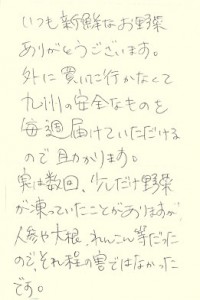 いつも新鮮なお野菜
ありがとうございます。
外に買いに行かなくて
九州の安全なものを
毎週届けていただける
ので助かります。
実は数回、少しだけ野菜
が凍っていたことがありますが
人参や大根、れんこん等だった
ので、それ程の害ではなかった
です。